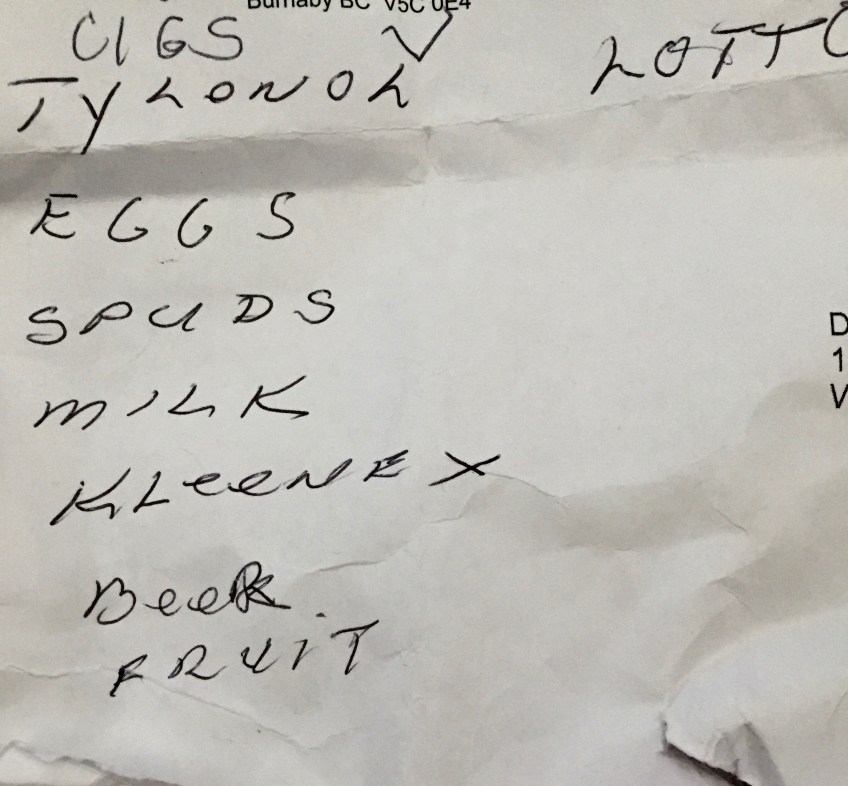 Burnaby BC V5C 0E4
CIGS ✓ LOTTO
TYLONOL
EGGS
SPUDS
MILK
KLeeNEX
BeeR
FRUIT
D
1
V